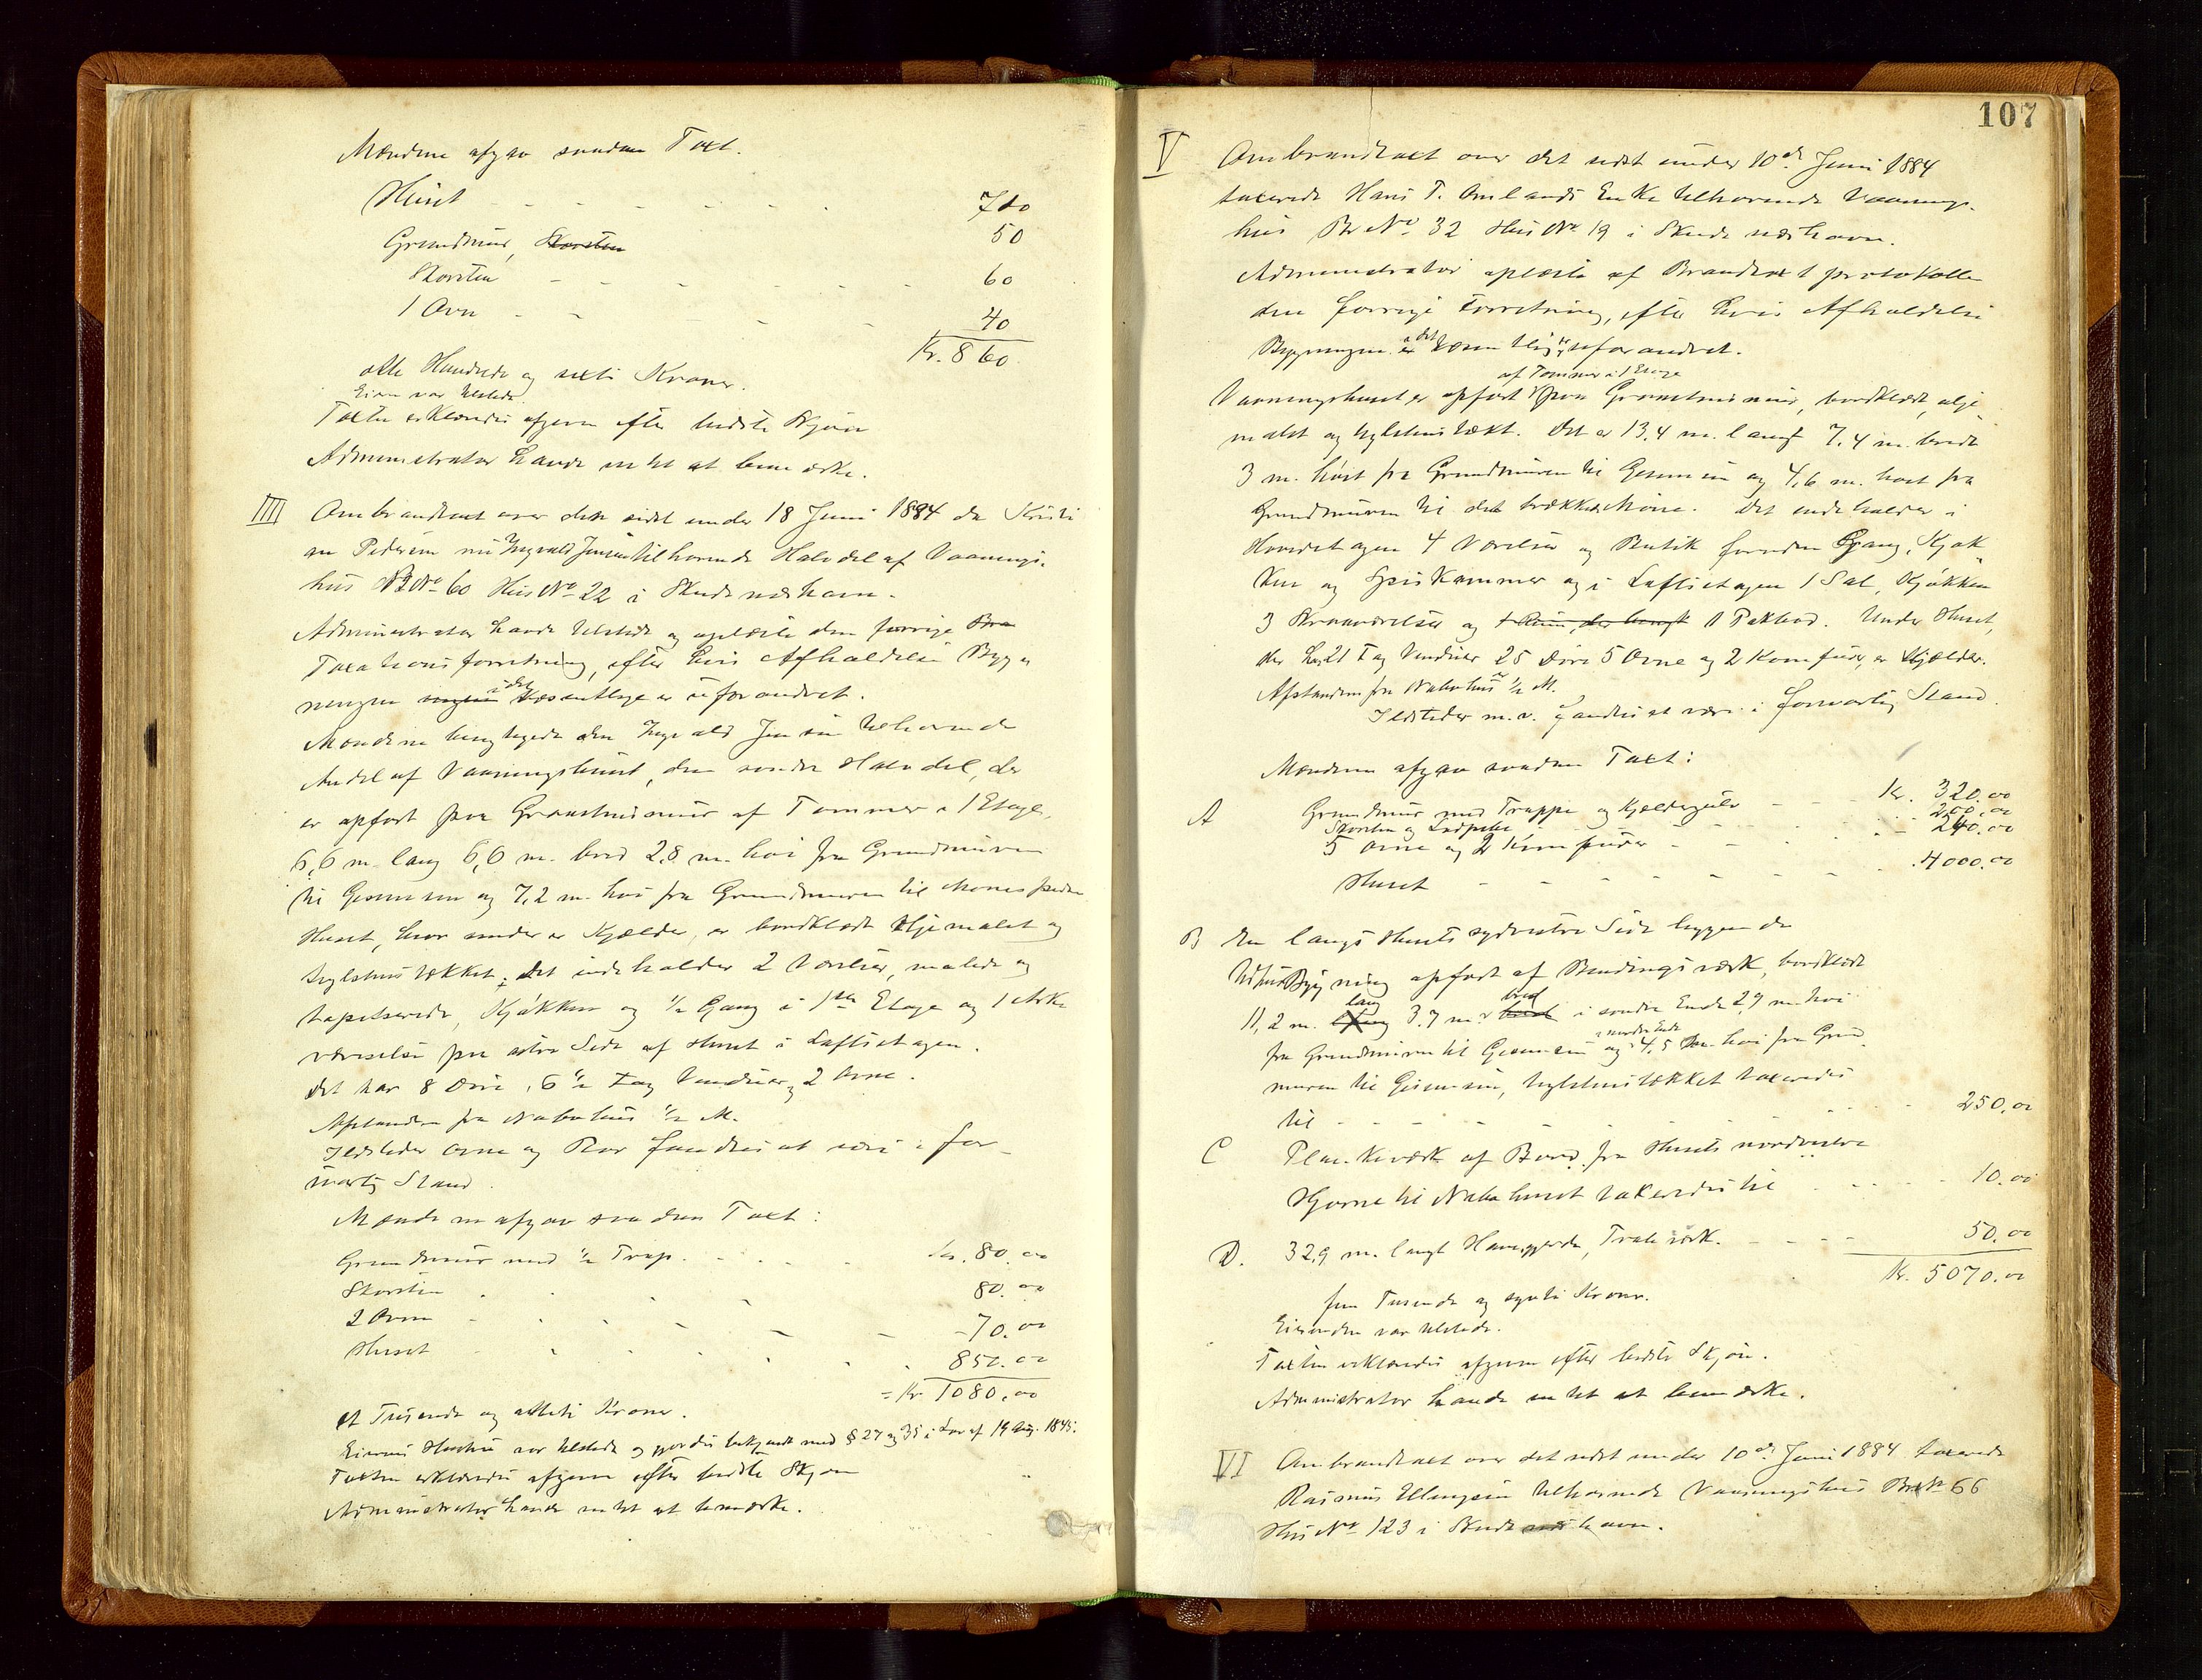 Mændene afgav saadan Taxt.
Huset - - - - - - 710
Grundmur, Skorsten 50
Skorsten - - - - - 60
1 Ovn - - - - 40
Kr. 860
otte Hundrede og sexti Kroner.
Eieren var tilstede.
Taxten erklæredes afgiven efter bedste Skjøn
Administrator havde intet at bemærke.
IIII Ombrandtaxt over den sidst under 18 Juni 1884 da Kristi
an Pedersen nu Ingvald Jensen tilhørende Halvdel af Vaanings-
hus B No 60 Hus No 22 i Skudesneshavn.
Administrator havde tilstede og oplæste den forrige Bra
Taxationsforretning, efter hvis Afholdelse Byg
ningen i det Væsentlige er uforandret.
Mændene besigtigede den Ingvald Jensen tilhørende
Andel af Vaaningshuset, den søndre Halvdel, der
er opført paa Graastensmur af Tømmer i 1 Etage,
6,6 m lang 6,6 m. bred 2,8 m. høi fra Grundmuren
til Gesimsen og 7,2 m. høi fra Grundmuren til Mønet
Huset, hvor under er Kjælder, er bordklædt oljemalet og
teglstenstækket. Det indeholder 2 Værelser, malede og
tapetserede, Kjøkken og ½ Gang i 1ste Etage og 1 Arke
værelse paa østre Side af Huset i Loftsetagen.
Det har 8 Døre, 6 ½ Fag Vinduer, 2 Ovne.
Afstanden fra Nabohus ½ M.
Ildsteder Ovne og Rør fandtes at være i for
svarlig Stand.
Mændene afgav saadan Taxt:
Grundmur med ½ Trap. - - - Kr. 80.00
Skorsten - - - 80.00
2 Ovne - - - - - 70.00
Huset - - - - - 850.00
= Kr 1080.00
et Tusende og otteti Kroner.
Eierens Hustru var tilstede og gjordes bekjendt med § 27 og 35 i Lov af 19 Aug. 1845.
Taxten erklæredes afgiven efter bedste Skjøn
Administrator havde intet at bemærke.
107
V Ombrandtaxt over det sidst under 10de Juni 1884
taxerede Hans T. Omlands Enke tilhørende Vaanings-
hus Br No 32 Hus No 19 i Skudesneshavn.
Administrator oplæste af Brandtaxtprotokollen
den forrige Forretning, efter hvis Afholdelse
Bygningen i det Væsentlige er uforandret.
af Tømmer i 1 Etage
Vaaningshuset er opført paa Graastensmur, bordklædt, olje
malet og teglstenstækt. Det er 13,4 m. langt 7,4 m. bredt
3 m. høit fra Grundmuren til Gesimsen og 4,6 m. høit fra
Grundmuren til det brækkede Møne. Det indeholder i
Hovedetagen 4 Værelser og Butik foruden Gang, Kjøk
ken og Spiskammer og i Loftsetagen 1 Sal, Kjøkken
3 Straaværelser og 1 Rum, der brugt 1 Pakbod. Under Huset,
der har 21 Fag Vinduer 25 Døre 5 Ovne og 2 Komfurer, er Kjælder.
Afstanden fra Nabohus er ½ M.
Ildsteder m.v. fandtes at være i forsvarlig Stand.
Mændene afgav saadan Taxt:
A Grundmur med Trappe og Kjældergulv - - - Kr. 320.00
Skorsten og - - - 200.00
5 Ovne og 2 Komfurer - - - 240.00
Huset - - - - - - 4000.00
B En langs Husets sydvestre Side liggende
Udhusbygning opført af Bindingsværk, bordklædt
11,2 m. lang 3.7 m. bred i søndre Ende 2,9 m. høi
fra Grundmuren til Gesimsen og i nordre Ende 4,5 m. høi fra Grund
muren til Gesimsen, teglstenstækket taxeredes
til - - - - - - 250.00
C Plankeværk af Bord fra Husets nordvestre
Hjørne til Nabohuset taxeredes til - - - - 10.00
D. 32,9 m. langt Havegjerde, Træværk. - - - - 50.00
Kr. 5070.00
fem Tusende og sytti Kroner.
Eierinden var tilstede.
Taxten erklæredes afgiven efter bedste Skjøn.
Administrator havde intet at bemærke.
VI Ombrandtaxt over det sidst under 10de Juni 1884 taxerede
Rasmus Ellingsen tilhørende Vaaningshus Br No 66
Hus No 123 i Skudesneshavn.